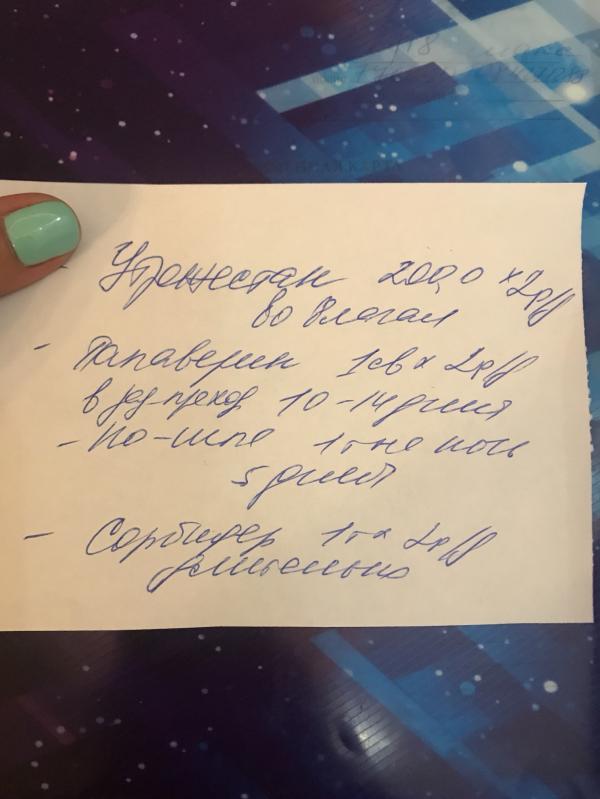 - Утрожестан 200,0 х 2р/д
во влагал
- Папаверин 1св х 2р/д
в зад. проход 10-14 дней
- Но-шпа 1т на ночь
5 дней
- Сорбифер 1т х 2р/д